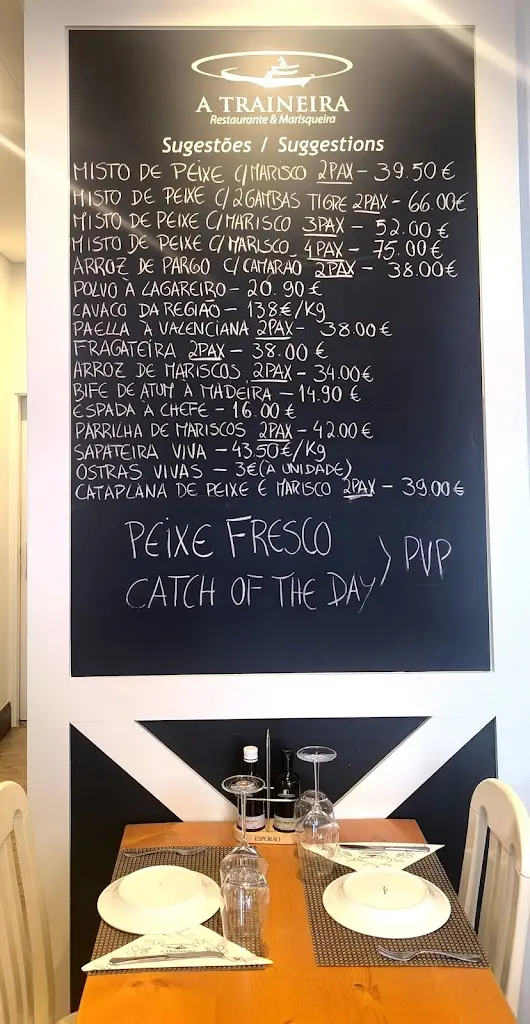 A TRAINEIRA
Restaurante & Marisqueira
Sugestões / Suggestions
MISTO DE PEIXE C/MARISCO 2PAX - 39.50 €
MISTO DE PEIXE C/2GAMBAS TIGRE 2PAX - 66.00€
MISTO DE PEIXE C/MARISCO 3PAX - 52.00 €
MISTO DE PEIXE C/MARISCO 4PAX - 75.00€
ARROZ DE PARGO C/CAMARÃO 2PAX - 38.00€
POLVO À LAGAREIRO - 20.90 €
CAVACO DA REGIÃO - 138€/Kg
PAELLA À VALENCIANA 2PAX - 38.00€
FRAGATEIRA 2PAX - 38.00 €
ARROZ DE MARISCOS 2PAX - 34.00€
BIFE DE ATUM À MADEIRA - 14.90 €
ESPADA À CHEFE - 16.00 €
PARRILHA DE MARISCOS 2PAX - 42.00 €
SAPATEIRA VIVA - 43.50€/Kg
OSTRAS VIVAS - 3€ (A UNIDADE)
CATAPLANA DE PEIXE E MARISCO 2PAX - 39.00 €
PEIXE FRESCO
CATCH OF THE DAY > PVP
ESPORÃO
A TRAINEIRA